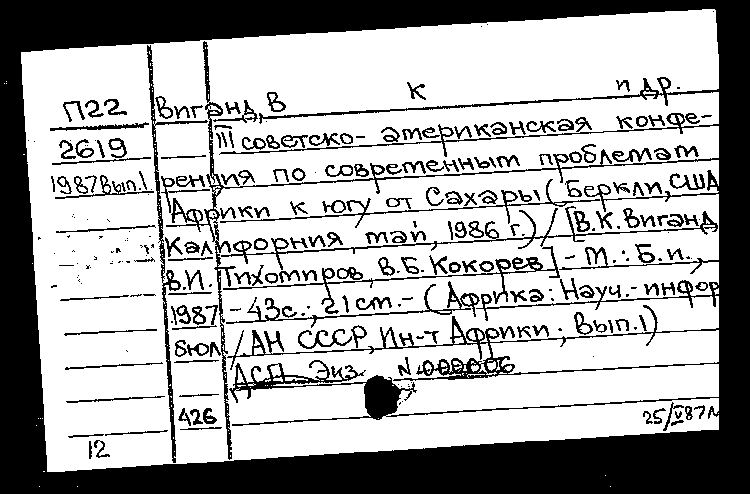 П22 Виганд, В К и др.
2619 III советско-американская конфе-
1987 Вып.1 ренция по современным проблемам
Африки к югу от Сахары (Беркли, США
Калифорния, май, 1986 г.) / [В.К. Виганд,
В.И. Тихомиров, В.Б. Кокорев] - М.: Б.и.,
1987 - 43с.; 21см. - (Африка: Науч.-инфор
бюл / АН СССР, Ин-т Африки; Вып.1)
ДСП Экз. N 000006
426 25/V87
12